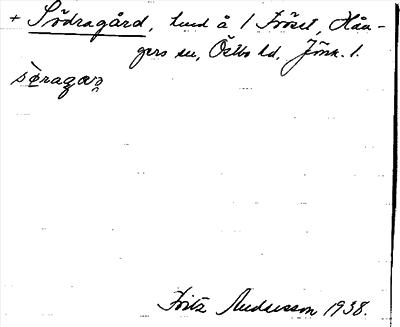 + Södragård, hmd å 1 Fröset, Hån-
gers sn, Östbo hd, Jönk. l.
sèragaꝛ
Fritz Andersson 1938.